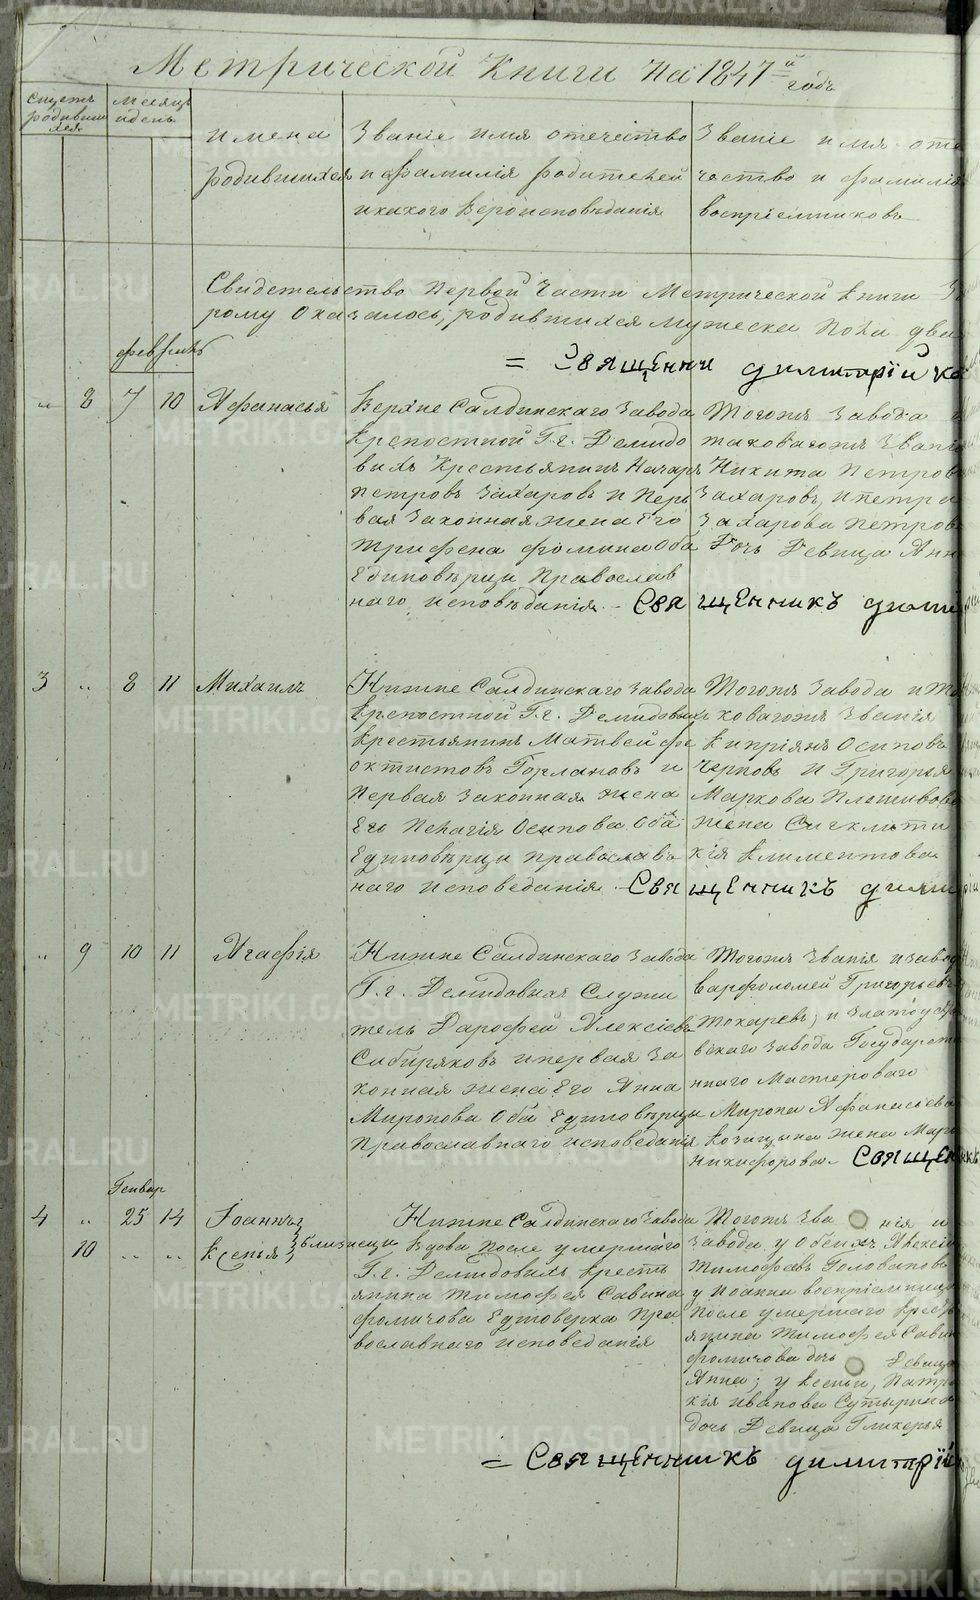 Метрической Книги На 1847й годъ
Счетъ родившихся
месяцъ и день
имена родившихся
Званіе имя отечество
и фамилія родителей
и какого вероисповѣданія
Званіе имя оте
чество и фамилія
воспріемниковъ
Свидетельство Первой Части Метрической Книги
рому Оказалось, родившихся мужеска пола два
= Священни димитрій
февраль
„ 8 7 10 Афанасья
Верхне Салдинскаго завода
Крепостной Г.г. Демидо
выхъ Крестьянинъ Назаръ
Петровъ Захаровъ и Пер
вая Законная жена Его
Трифена фомина Оба
Единовѣрцы Православ
наго исповѣданія. -
Тогожъ Завода и
таковагожъ Званія
Никита Петров
Захаровъ, и петра
Захарова Петров
Дочь Девица Анн
Священникъ дими
3 „ 8 11 Михаилъ
Нижне Салдинскаго завода
Крепостной Г.г. Демидовыхъ
Крестьянинъ Матвей фе
октистовъ Горлановъ и
Первая Законная жена
Его Пелагія Осипова Оба
Единовѣрцы православ
наго исповеданія. -
Тогожъ Завода и та
ковагожъ Званія
Кипріянъ Осиповъ
Черновъ И Григорья
Маркова Плотивова
Жена Сигклити
кія Климентова
Священникъ дими
„ 9 10 11 Агафія
Нижне Салдинскаго завода
Г.г. Демидовыхъ Служи
тель Дарофей Алексіевъ
Сибиряковъ и первая За
конная жена Его Анна
Миронова Оба Единовѣрцы
Православнаго исповеданія
Тогожъ Званія и завод
Варфоломей Григорьевъ
Токаревъ; и Златоустов
вскаго завода Государств
ннаго Мастероваго
Мирона Афанасьева
Козицына жена Мар
никифорова. Священникъ
Генвар
4 „ 25 14 Іоаннъ
10 „ „ Ксенья близнецы
Нижне Салдинскаго завода
Вдова после умершаго
Г.г. Демидовыхъ Кресть
янина Тимофея Савина
фомичова Единоверка Пра
вославнаго исповеданія
Тогожъ Зва нія и
Завода у Обеихъ Алексѣй
Тимофѣевъ Головановъ
у Иоанна воспріемница
После умершаго Кресть
янина Тимофея Савин
фомичова дочь Девица
Анна; у Ксеньи, Патри
кія Иванова Сутырина
дочь Девица Гликерья
= Священникъ димитрій